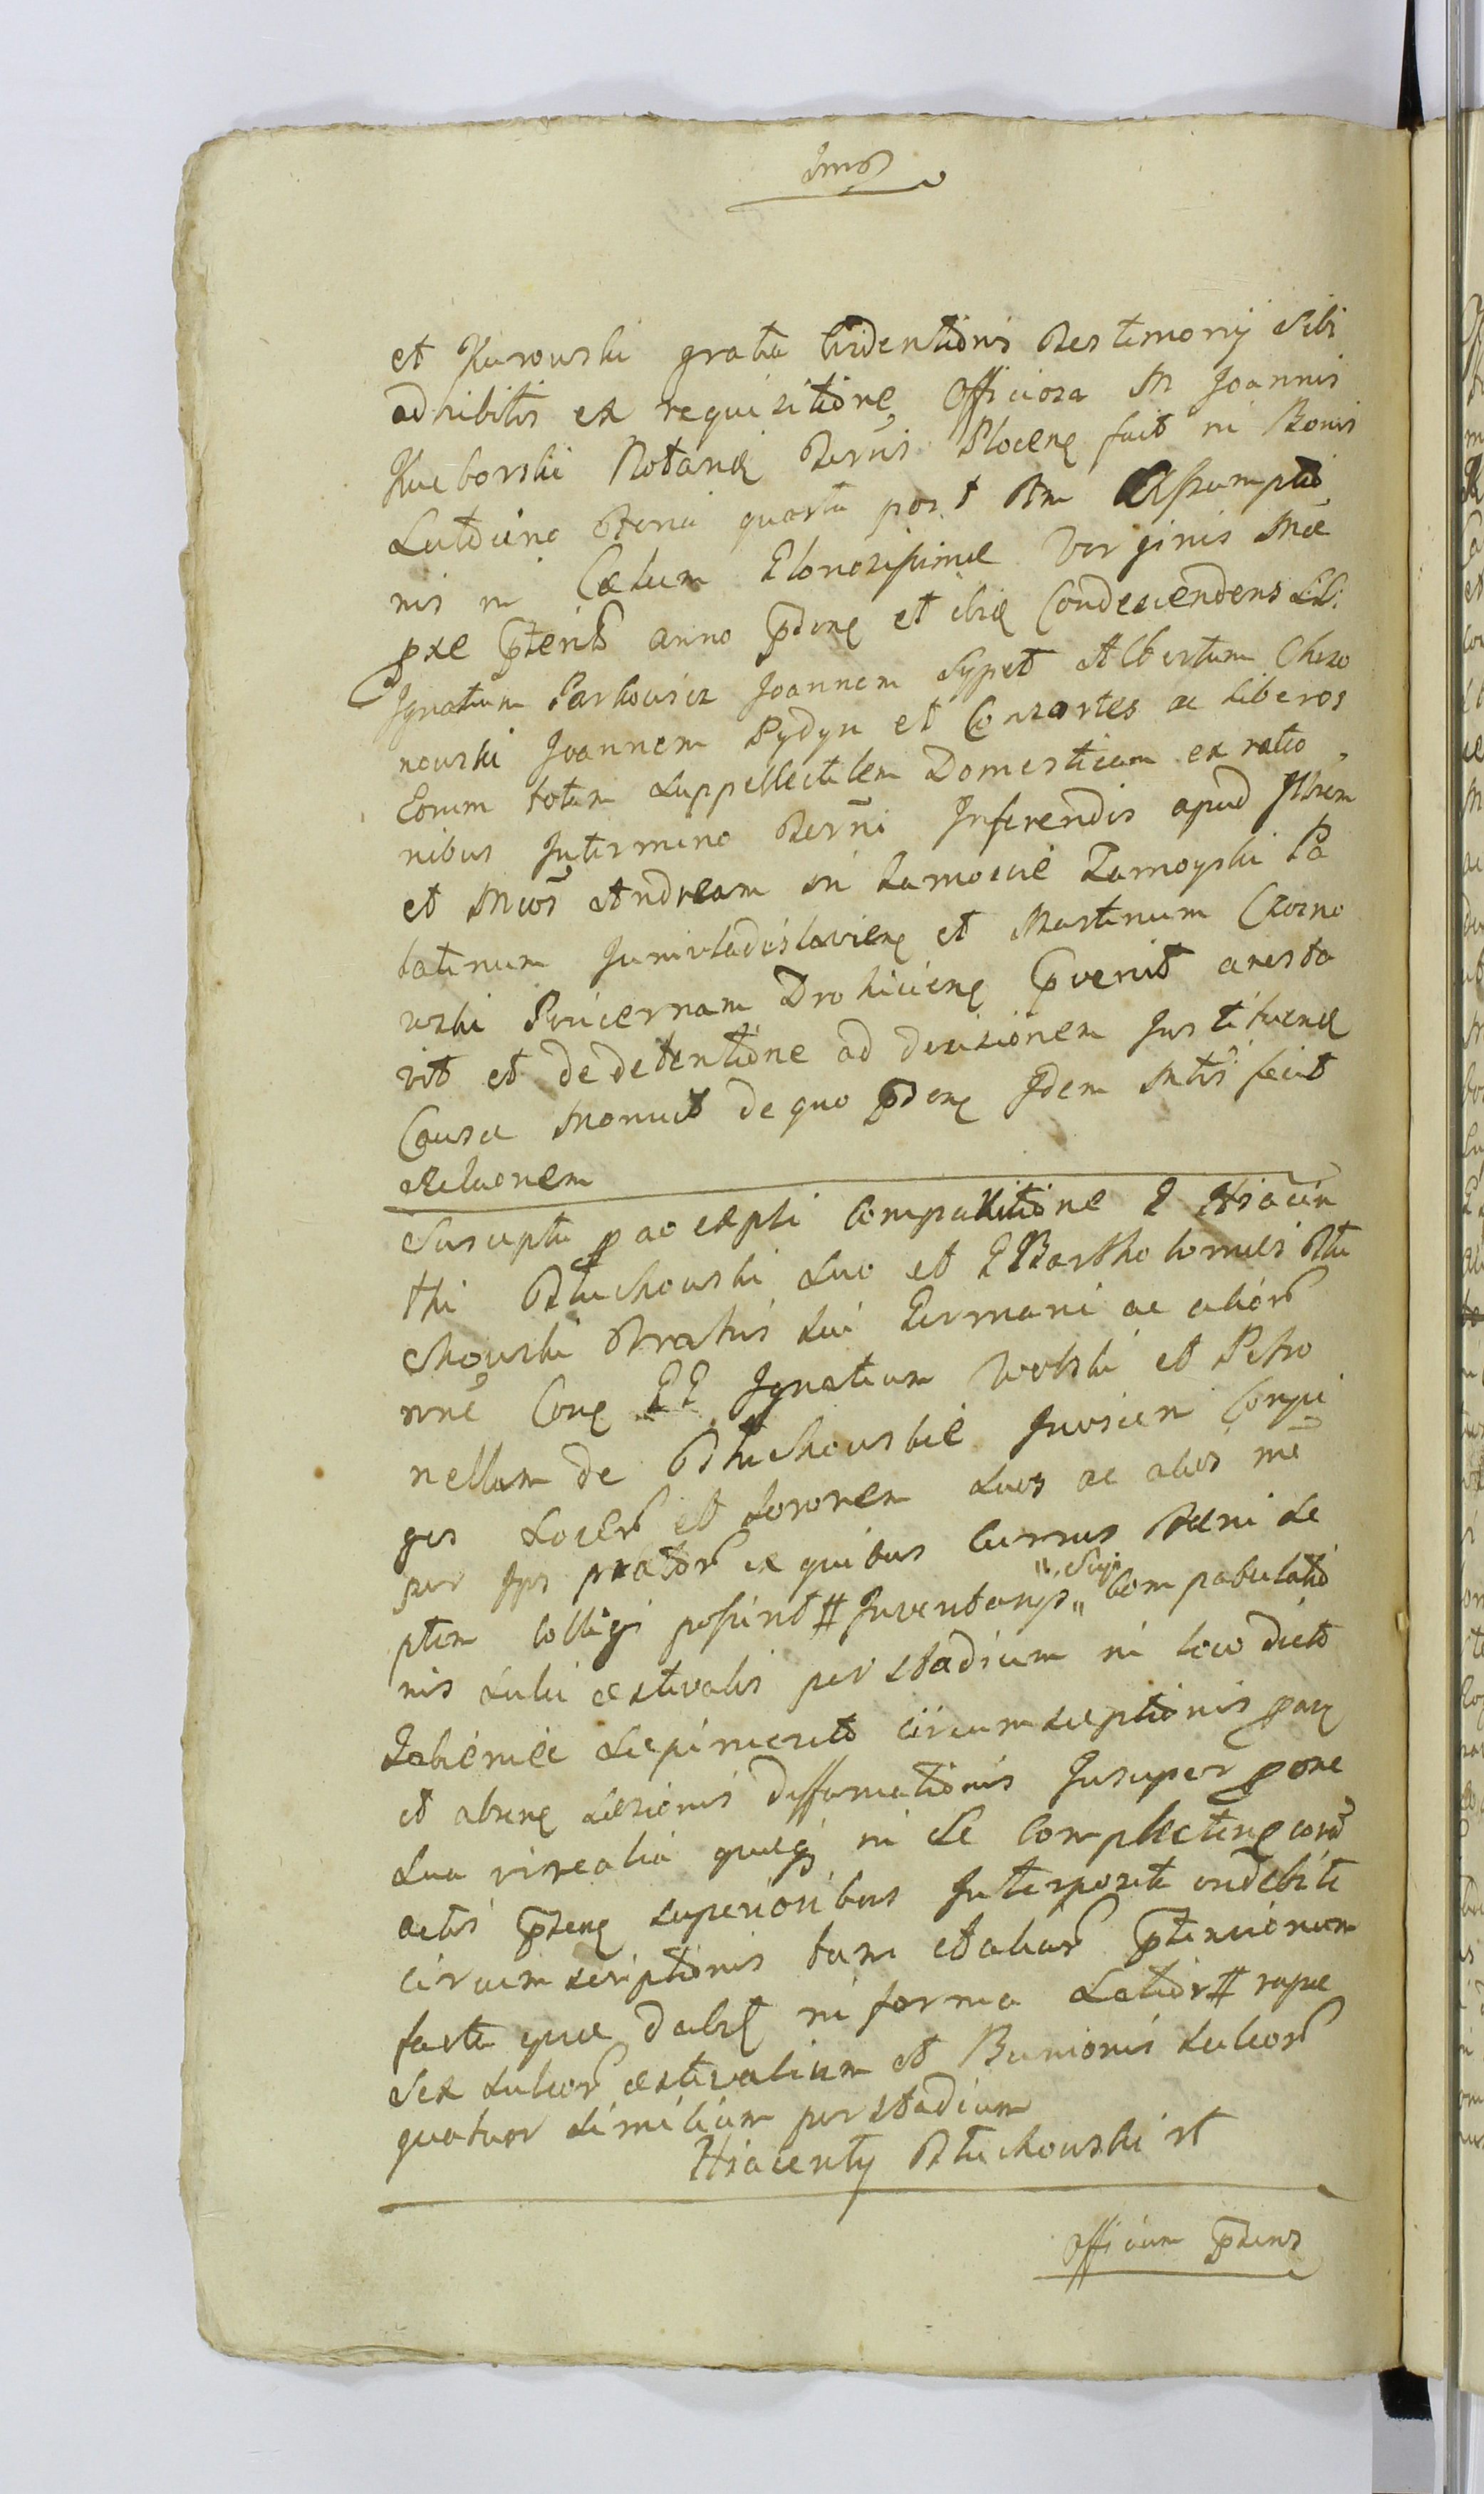 et Kurowski gratia evidentioris Testimonij Sibi
adhibitis ex requisitione Officiosa M Joannis
Kucborski Notarij Terris Plocen fuit in Bonis
feria quarta post Assumptio
nis in Cælum Gloriosissimæ Virginis Mæ
pxe pterit anno pden et ibid Condescendens LL:
Ignatium Parkowicz Joannem Sypet Albertum Chrzo
nowski Joannem Pydyn et Consortes ac liberos
Eorum totam Suppellectilem Domesticam ex ratio
nibus Intermino Terrni Inferendis apud Illrem
et Mcos Andream in Zamoscie Zamoyski Pa
latinum Juniwladislavien et Martinum Czarno
wski Pincernam Drohicien pvenit aresta
vit et de detentione ad decisionem Instituend
Causæ Monuit de quo pden Idem Mtris fecit
relaonem
Suscepta p accepti Comparitione G Hiacin
thi Pluchowski Suo et G Bartholomei Plu
chowski Fratris Sui Germani ac alior
nne Con GG Ignatium Wolski et Petro
nellam de Pluchowskie Invicem Conju
ges Socer et Sororem Suos ac alios
per Ips prator ex quibus currus fæni Se
ptem colligi possint # Inventarijs " Sui" Compabulatio
nis Sulci æstivalis per Stadium in loco dicto
Sepimento circumseptionis par
et absen læsionis diffamationis Insuper pone
Sua virealia quæq in Se Complecten coram
actis pten superioribus Interposita indebite
circumscriptionis tum et aliar ptensionum
facta quæ dabit in forma Latior # rapæ
Sex Sulcor æstivalium et Bunionis Sulcor
quatuor Similium per Stadium
Hiacenty Pluchowski rt
Officium ptens